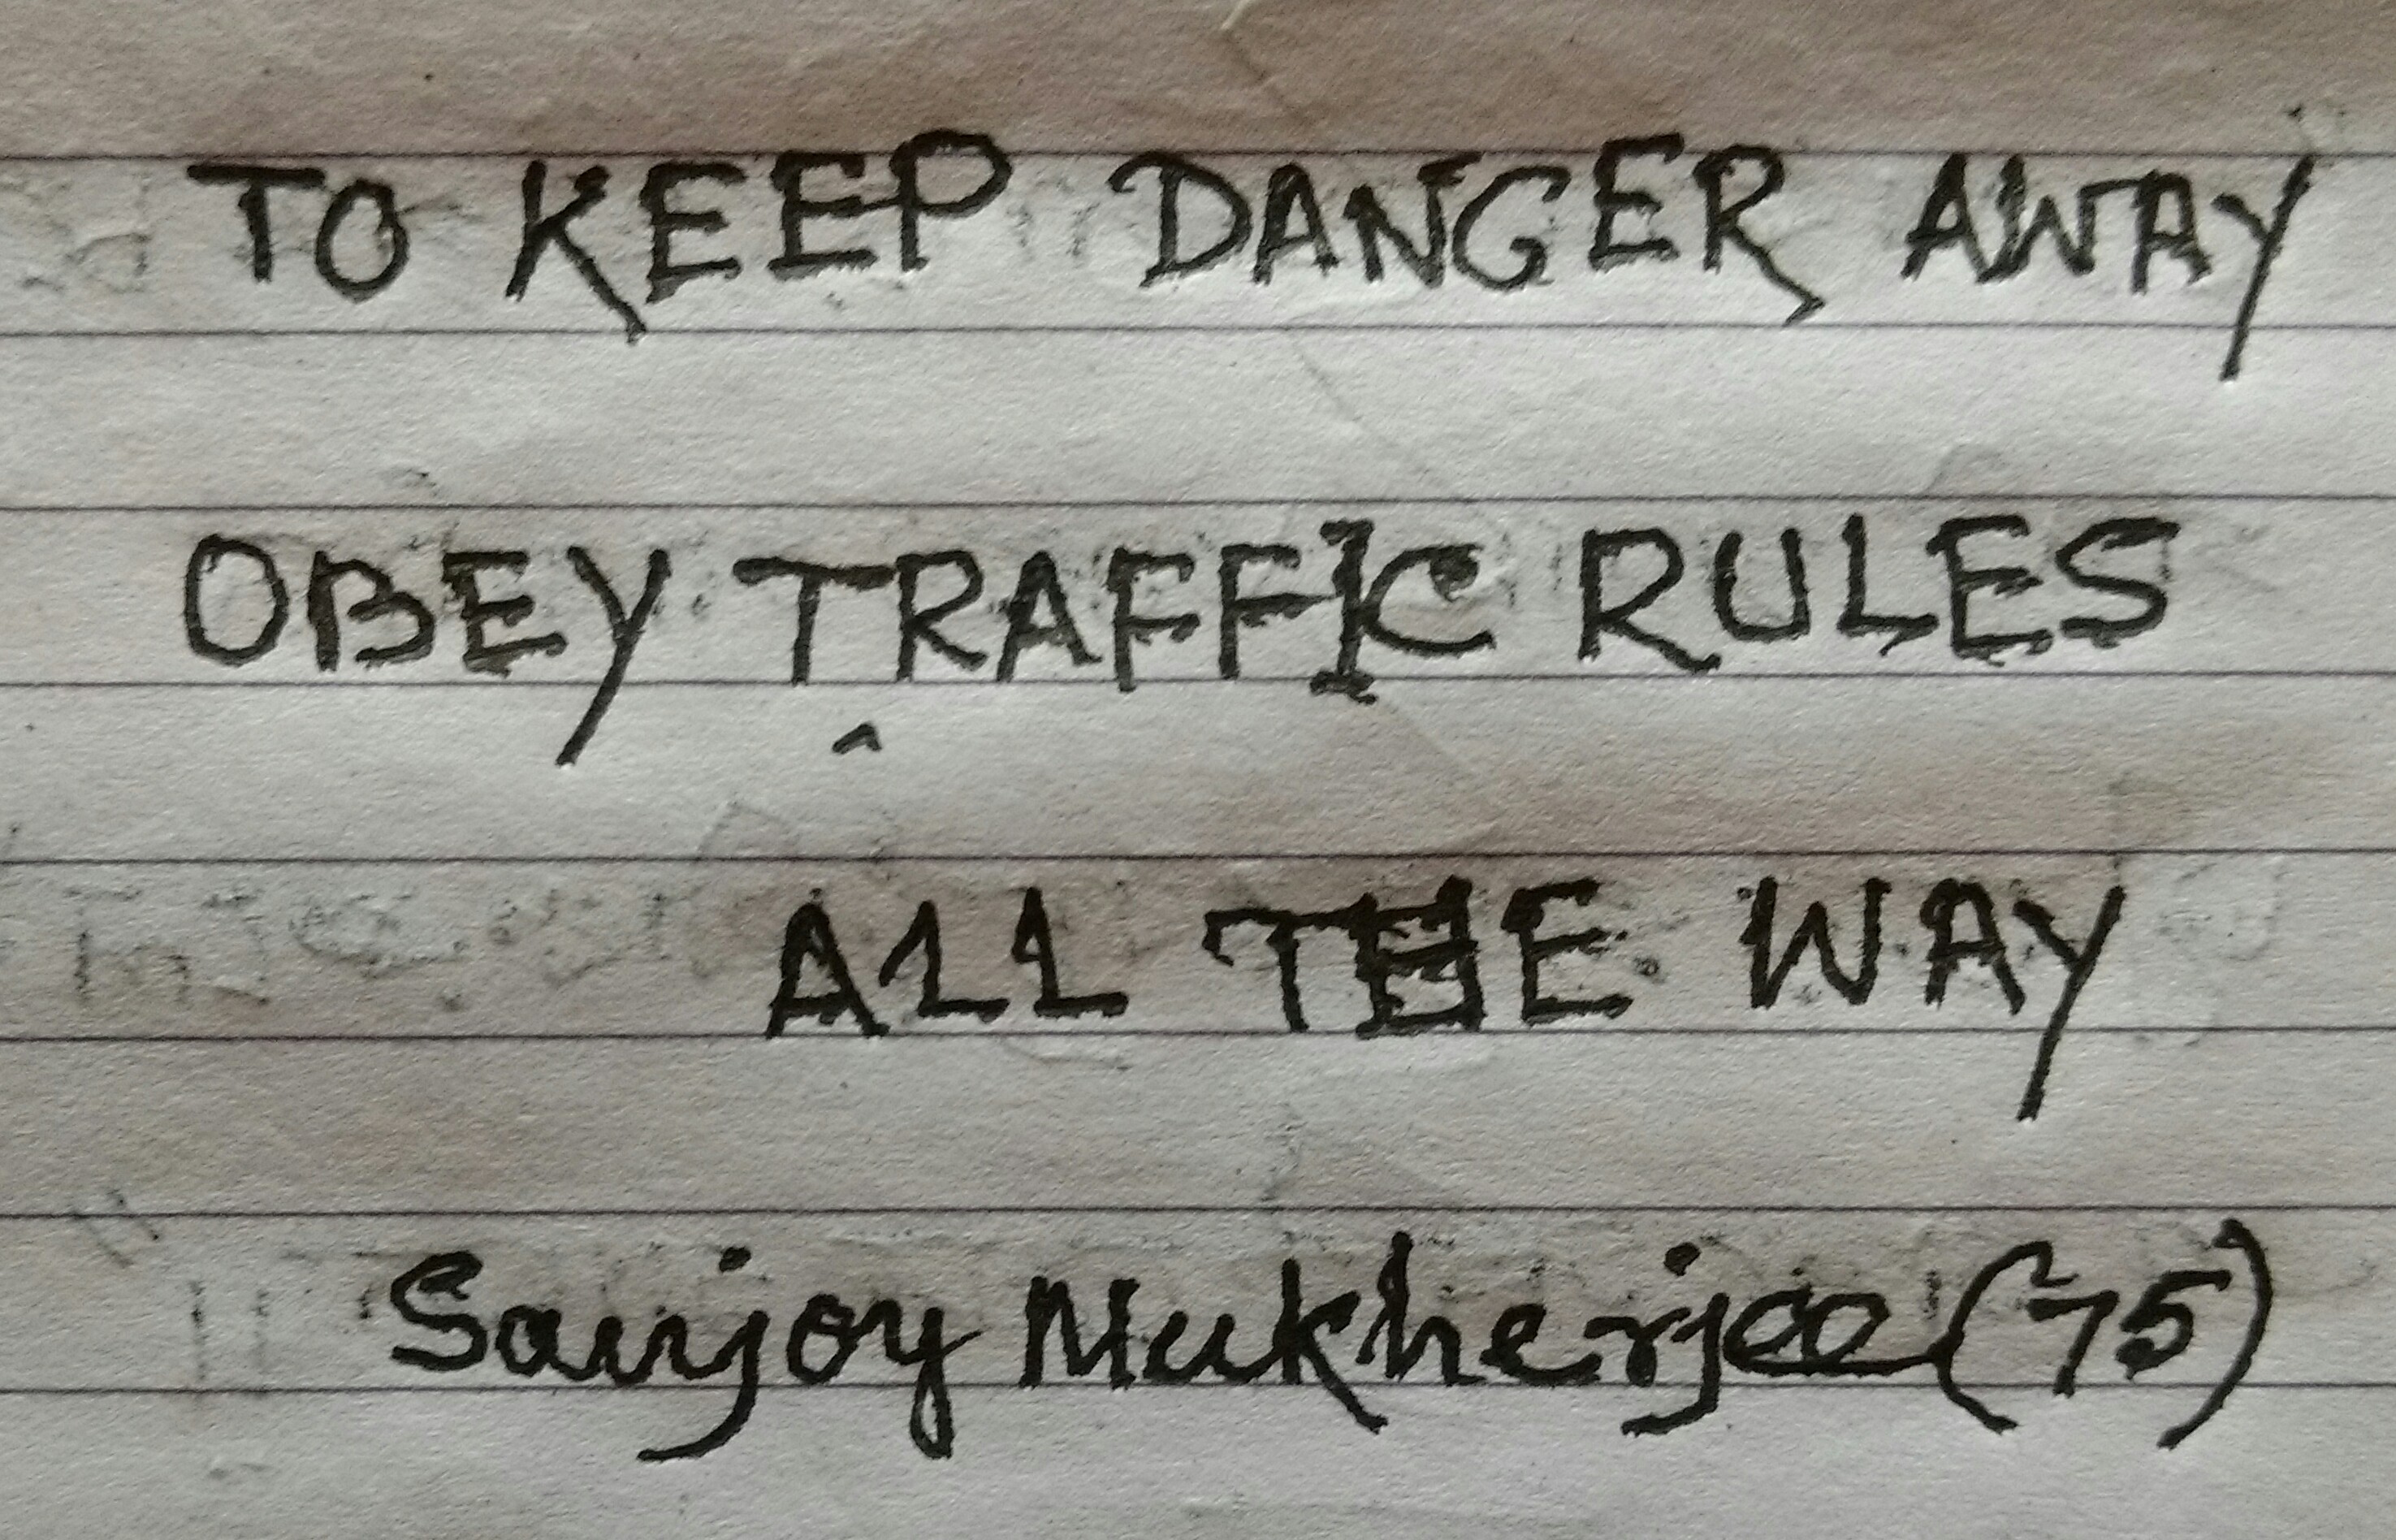 TO KEEP DANGER AWAY
OBEY TRAFFIC RULES
ALL THE WAY
Sanjoy Mukherjee (75)